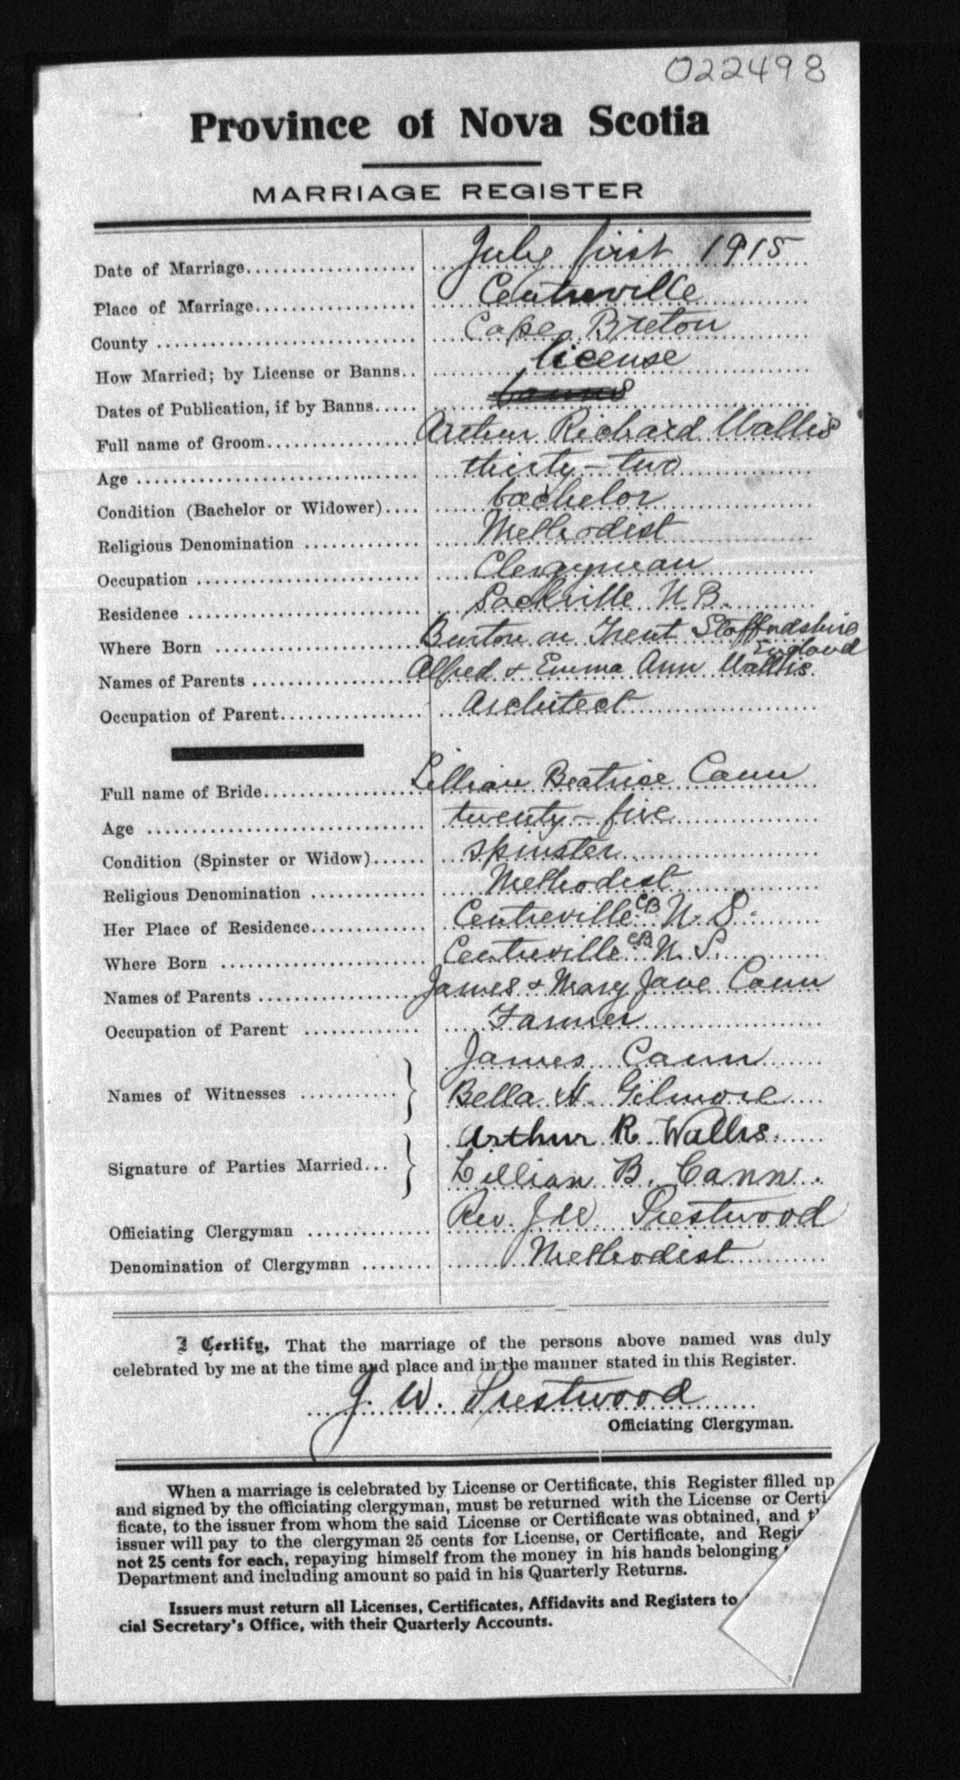 022498
Province of Nova Scotia
MARRIAGE REGISTER
Date of Marriage.................... July first 1915
Place of Marriage................... Centreville
County .............................. Cape Breton
How Married; by License or Banns.. license
Dates of Publication, if by Banns..... banns
Full name of Groom.................. Arthur Richard Wallis
Age ................................. thirty-two
Condition (Bachelor or Widower).... bachelor
Religious Denomination ............. Methodist
Occupation .......................... Clergyman
Residence ........................... Sackville N.B.
Where Born ........................ Burton on Trent Staffordshire
England
Names of Parents ................... Alfred & Emma Ann Wallis
Occupation of Parent................. Architect
Full name of Bride................... Lillian Beatrice Cann
Age ................................. twenty-five
Condition (Spinster or Widow)...... spinster
Religious Denomination ............. Methodist
Her Place of Residence............. Centreville CB N.S.
Where Born ........................ Centreville CB N.S.
Names of Parents .................. James & Mary Jane Cann
Occupation of Parent .............. Farmer
James Cann
Names of Witnesses ........... } Bella H. Gilmore
Arthur R. Wallis.
Signature of Parties Married... } Lillian B. Cann.
Officiating Clergyman .............. Rev. J W Prestwood
Denomination of Clergyman ........ Methodist
I Certify, That the marriage of the persons above named was duly
celebrated by me at the time and place and in the manner stated in this Register.
J. W. Prestwood
Officiating Clergyman.
When a marriage is celebrated by License or Certificate, this Register filled up
and signed by the officiating clergyman, must be returned with the License or Certi-
ficate, to the issuer from whom the said License or Certificate was obtained, and
issuer will pay to the clergyman 25 cents for License, or Certificate, and
not 25 cents for each, repaying himself from the money in his hands belonging
Department and including amount so paid in his Quarterly Returns.
Issuers must return all Licenses, Certificates, Affidavits and Registers to
cial Secretary's Office, with their Quarterly Accounts.